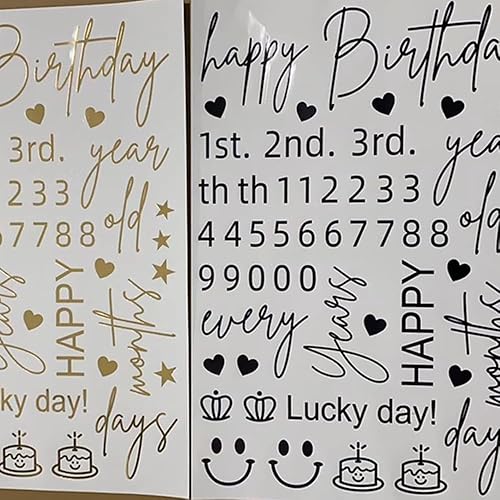 Birthday
3rd. year
2 2 3 3
old
6 7 7 8 8
years
HAPPY
months
ky day!
days
happy Birthday
1st. 2nd. 3rd. yea
th th 1 1 2 2 3 3
old
4 4 5 5 6 6 7 7 8 8
9 9 0 0 0 0
every
years
HAPPY
months
Lucky day!
days